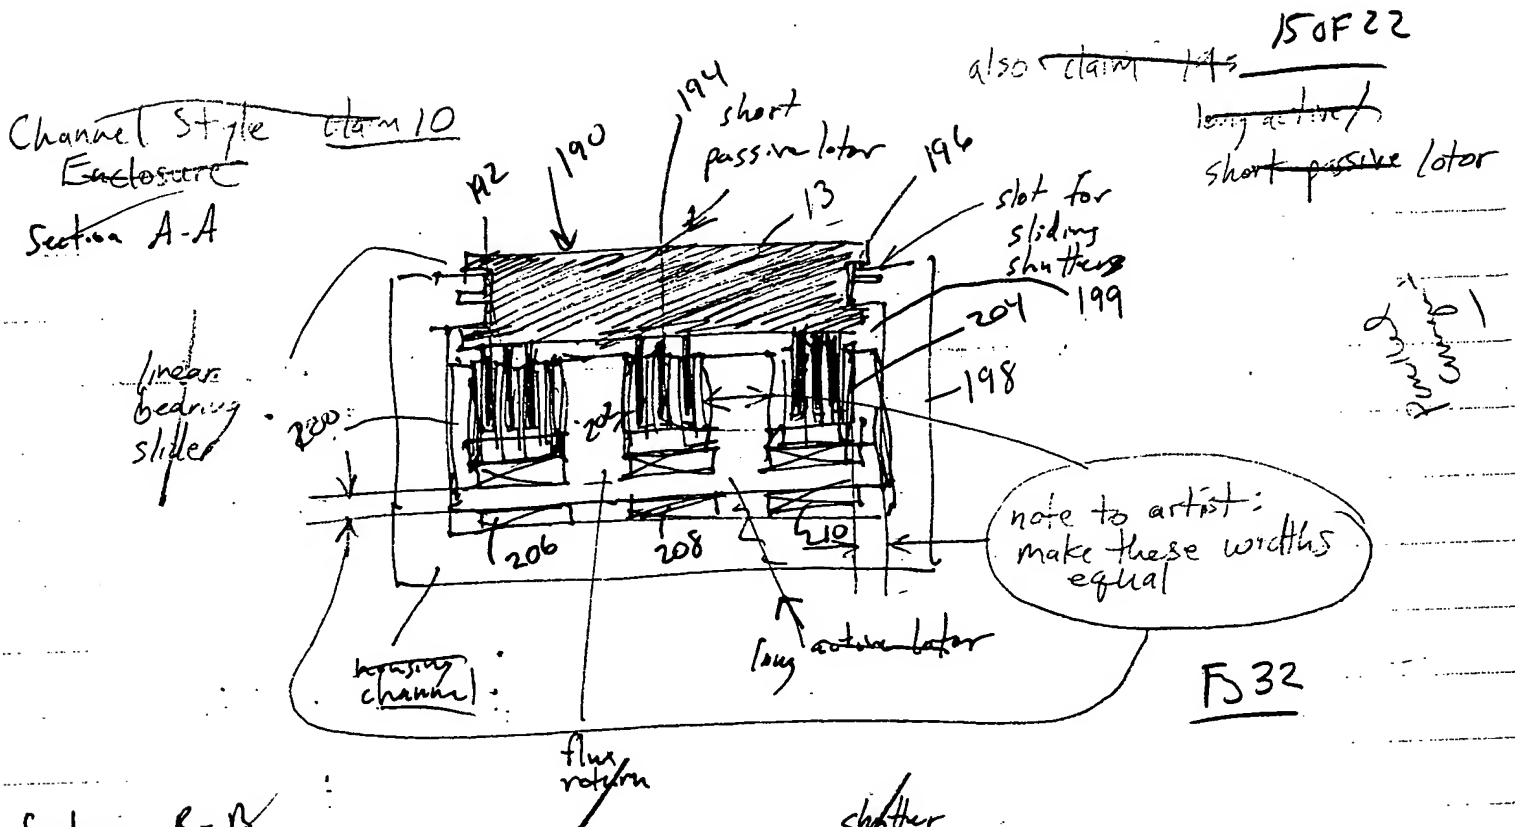 15 OF 22
also claim 14s
long active/
short passive lotor
Channel Style claim 10
Enclosure
Section A-A
192
190
194
short
passive lotor
13
196
slot for
sliding
shutters
199
204
198
linear
bearing
slider
200
202
206
208
210
note to artist:
make these widths
equal
housing
channel
long active lotor
flux
return
32
B-B
shutter